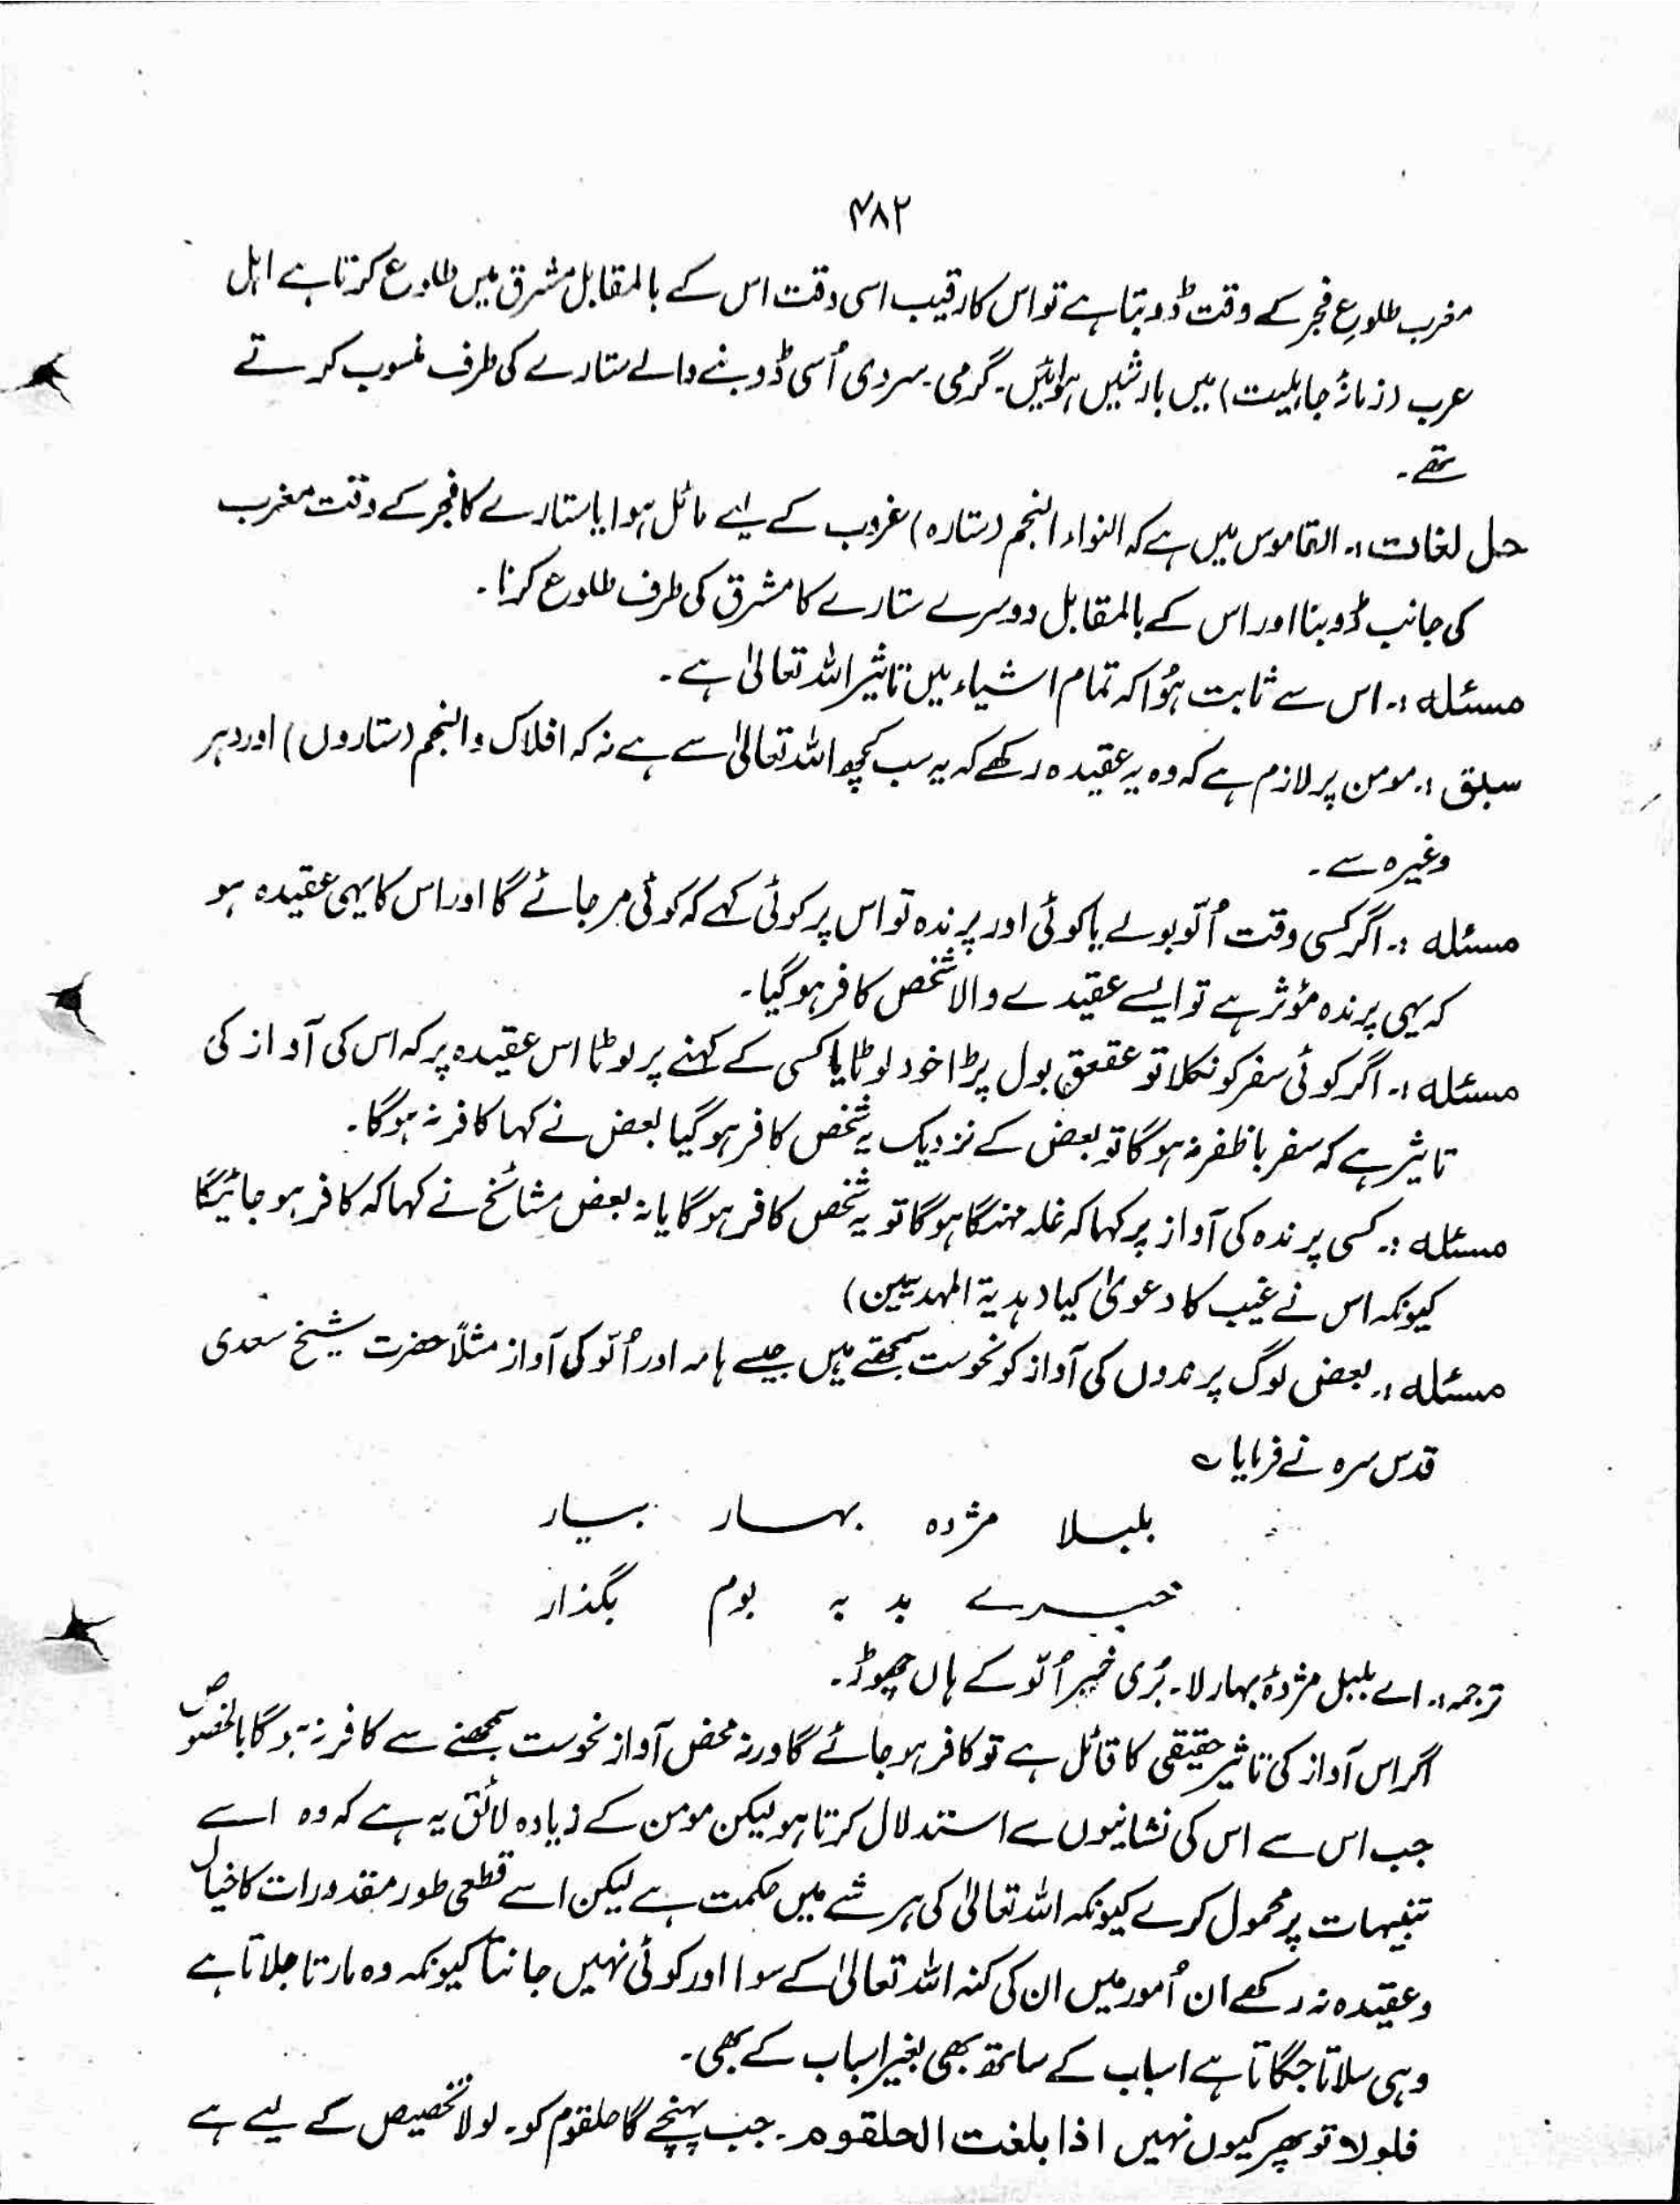 ۴۸۲
مغرب طلوعِ فجر کے وقت ڈوبتا ہے تو اس کا رقیب اسی وقت اس کے بالمقابل مشرق میں طلوع کرتا ہے اہل
عرب (زمانۂ جاہلیت) میں بارشیں ہوائیں۔ گرمی۔ سردی اُسی ڈوبنے والے ستارے کی طرف منسوب کرتے
تھے۔
حل لغات :۔ القاموس میں ہے کہ النواء النجم (ستارہ) غروب کے لیے مائل ہوا یا ستارے کا فجر کے وقت مغرب
کی جانب ڈوبنا اور اس کے بالمقابل دوسرے ستارے کا مشرق کی طرف طلوع کرنا۔
مسئلہ :۔ اس سے ثابت ہُوا کہ تمام اشیاء میں تاثیر اللہ تعالیٰ ہے۔
سبلق :۔ مومن پر لازم ہے کہ وہ یہ عقیدہ رکھے کہ یہ سب کچھ اللہ تعالیٰ سے ہے نہ کہ افلاک والنجم (ستاروں) اور دہر
وغیرہ سے۔
مسئلہ :۔ اگر کسی وقت اُلّو بولے یا کوئی اور پرندہ تو اس پر کوئی کہے کہ کوئی مر جائے گا اور اس کا یہی عقیدہ ہو
کہ یہی پرندہ مؤثر ہے تو ایسے عقیدے والا شخص کافر ہو گیا۔
مسئلہ :۔ اگر کوئی سفر کو نکلا تو عقعق بول پڑا خود لوٹا یا کسی کے کہنے پر لوٹا اس عقیدہ پر کہ اس کی آواز کی
تاثیر ہے کہ سفر باظفر نہ ہوگا تو بعض کے نزدیک یہ شخص کافر ہو گیا بعض نے کہا کافر نہ ہوگا۔
مسئلہ :۔ کسی پرندہ کی آواز پر کہا کہ غلہ مہنگا ہوگا تو یہ شخص کافر ہو گا یا نہ بعض مشائخ نے کہا کہ کافر ہو جائیگا
کیونکہ اس نے غیب کا دعویٰ کیا (ہدیۃ المہدیین)
مسئلہ :۔ بعض لوگ پرندوں کی آواز کو نحوست سمجھتے ہیں جیسے ہامہ اور اُلّو کی آواز مثلاً حضرت شیخ سعدی
قدس سرہ نے فرمایا ؎
بلبلا مژدہ بہار بیار
خبرے بد بہ بوم بگذار
ترجمہ :۔ اے بلبل مژدۂ بہار لا۔ بُری خبر اُلّو کے ہاں چھوڑ۔
اگر اس آواز کی تاثیرِ حقیقی کا قائل ہے تو کافر ہو جائے گا ورنہ محض آواز نحوست سمجھنے سے کافر نہ ہو گا بالخصوص
جب اس سے اس کی نشانیوں سے استدلال کرتا ہو لیکن مومن کے زیادہ لائق یہ ہے کہ وہ اسے
تنبیہات پر محمول کرے کیونکہ اللہ تعالیٰ کی ہر شے میں حکمت ہے لیکن اسے قطعی طور مقدورات کا خیال
و عقیدہ نہ رکھے ان اُمور میں ان کی کنہ اللہ تعالیٰ کے سوا اور کوئی نہیں جانتا کیونکہ وہ مارتا جلاتا ہے
وہی سلاتا جگاتا ہے اسباب کے ساتھ بھی بغیر اسباب کے بھی۔
فلولا تو پھر کیوں نہیں اذا بلغت الحلقوم۔ جب پہنچے گا حلقوم کو۔ لولا تخصیص کے لیے ہے